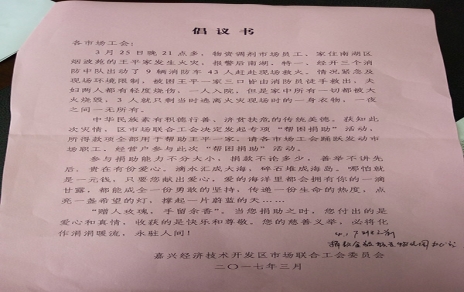 倡议书
各市场工会:
3月25日晚21点多,物资调剂市场员工,家住南湖区
烟波苑的王平家发生火灾,报警后南湖、特一、经开三个消
防中队出动了9辆消防车43人赶赴现场救火。情况紧急及
现场环境限制,被困王平一家三口皆由消防员徒手救出,夫
妇两人都有轻度烧伤,一人入院,但是家中所有一切都被大
火烧毁,3人就只剩当时逃离火灾现场时的一身衣物,一夜
之间一无所有。
中华民族素有积德行善,济贫扶危的传统美德,获知此
次火情,区市场联合工会决定发起专项“帮困捐助”活动,
所得款项全部用于帮助王平一家,请各市场工会踊跃发动市
场职工、经营户参与此次“帮困捐助”活动。
参与捐助能力不分大小,捐款不论多少,善举不讲先
后,贵在有份爱心,滴水汇成大海,碎石堆成海岛,哪怕就
是一元钱,只要您献出爱心,爱的海洋里都会拥有你的一滴
甘露,都能成全一份勇敢的坚持,传递一份生命的热度,点
亮一盏希望的灯,撑起一片蔚蓝的天……
“赠人玫瑰,手留余香”。当您捐助之时,您付出的是
爱心和真情,收获的是快乐和尊敬。您的慈善义举,必将化
作涓涓暖流,永驻人间!
嘉兴经济技术开发区市场联合工会委员会
二〇一七年三月